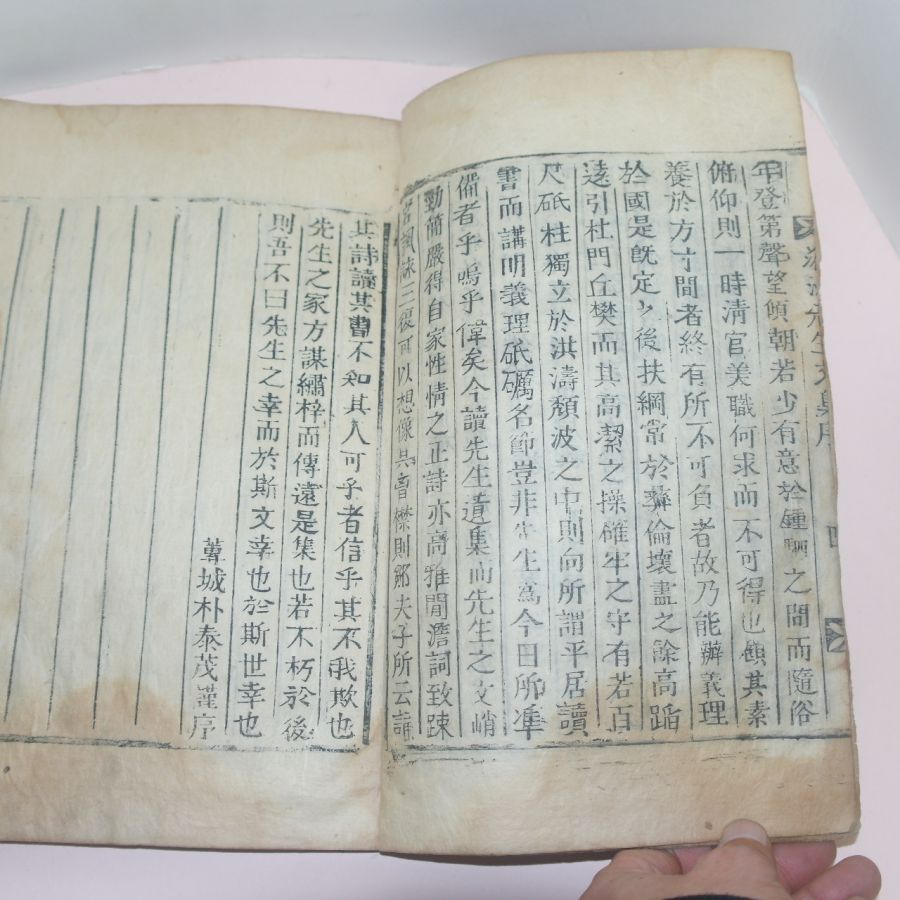 年登第聲望傾朝若少有意於鍾駟之間而隨俗
俯仰則一時清官美職何求而不可得也顧其素
養於方寸間者終有所不可負者故乃能辦義理
於國是旣定之後扶綱常於彝倫壞盡之餘高蹈
遠引杜門丘樊而其高潔之操確牢之守有若百
尺砥柱獨立於洪濤頹波之中則向所謂平居讀
書而講明義理砥礪名節豈非先生爲今日所準
備者乎嗚乎偉矣今讀先生遺集而先生之文峭
勁簡嚴得自家性情之正詩亦高雅閒澹詞致疎
宕諷詠三復可以想像其曺襟則鄒夫子所云誦
其詩讀其書不知其人可乎者信乎其不我欺也
先生之家方謀繡梓而傳遠是集也若不朽於後
則吾不曰先生之幸而於斯文幸也於斯世幸也
朴泰茂謹序
先生文集序
四